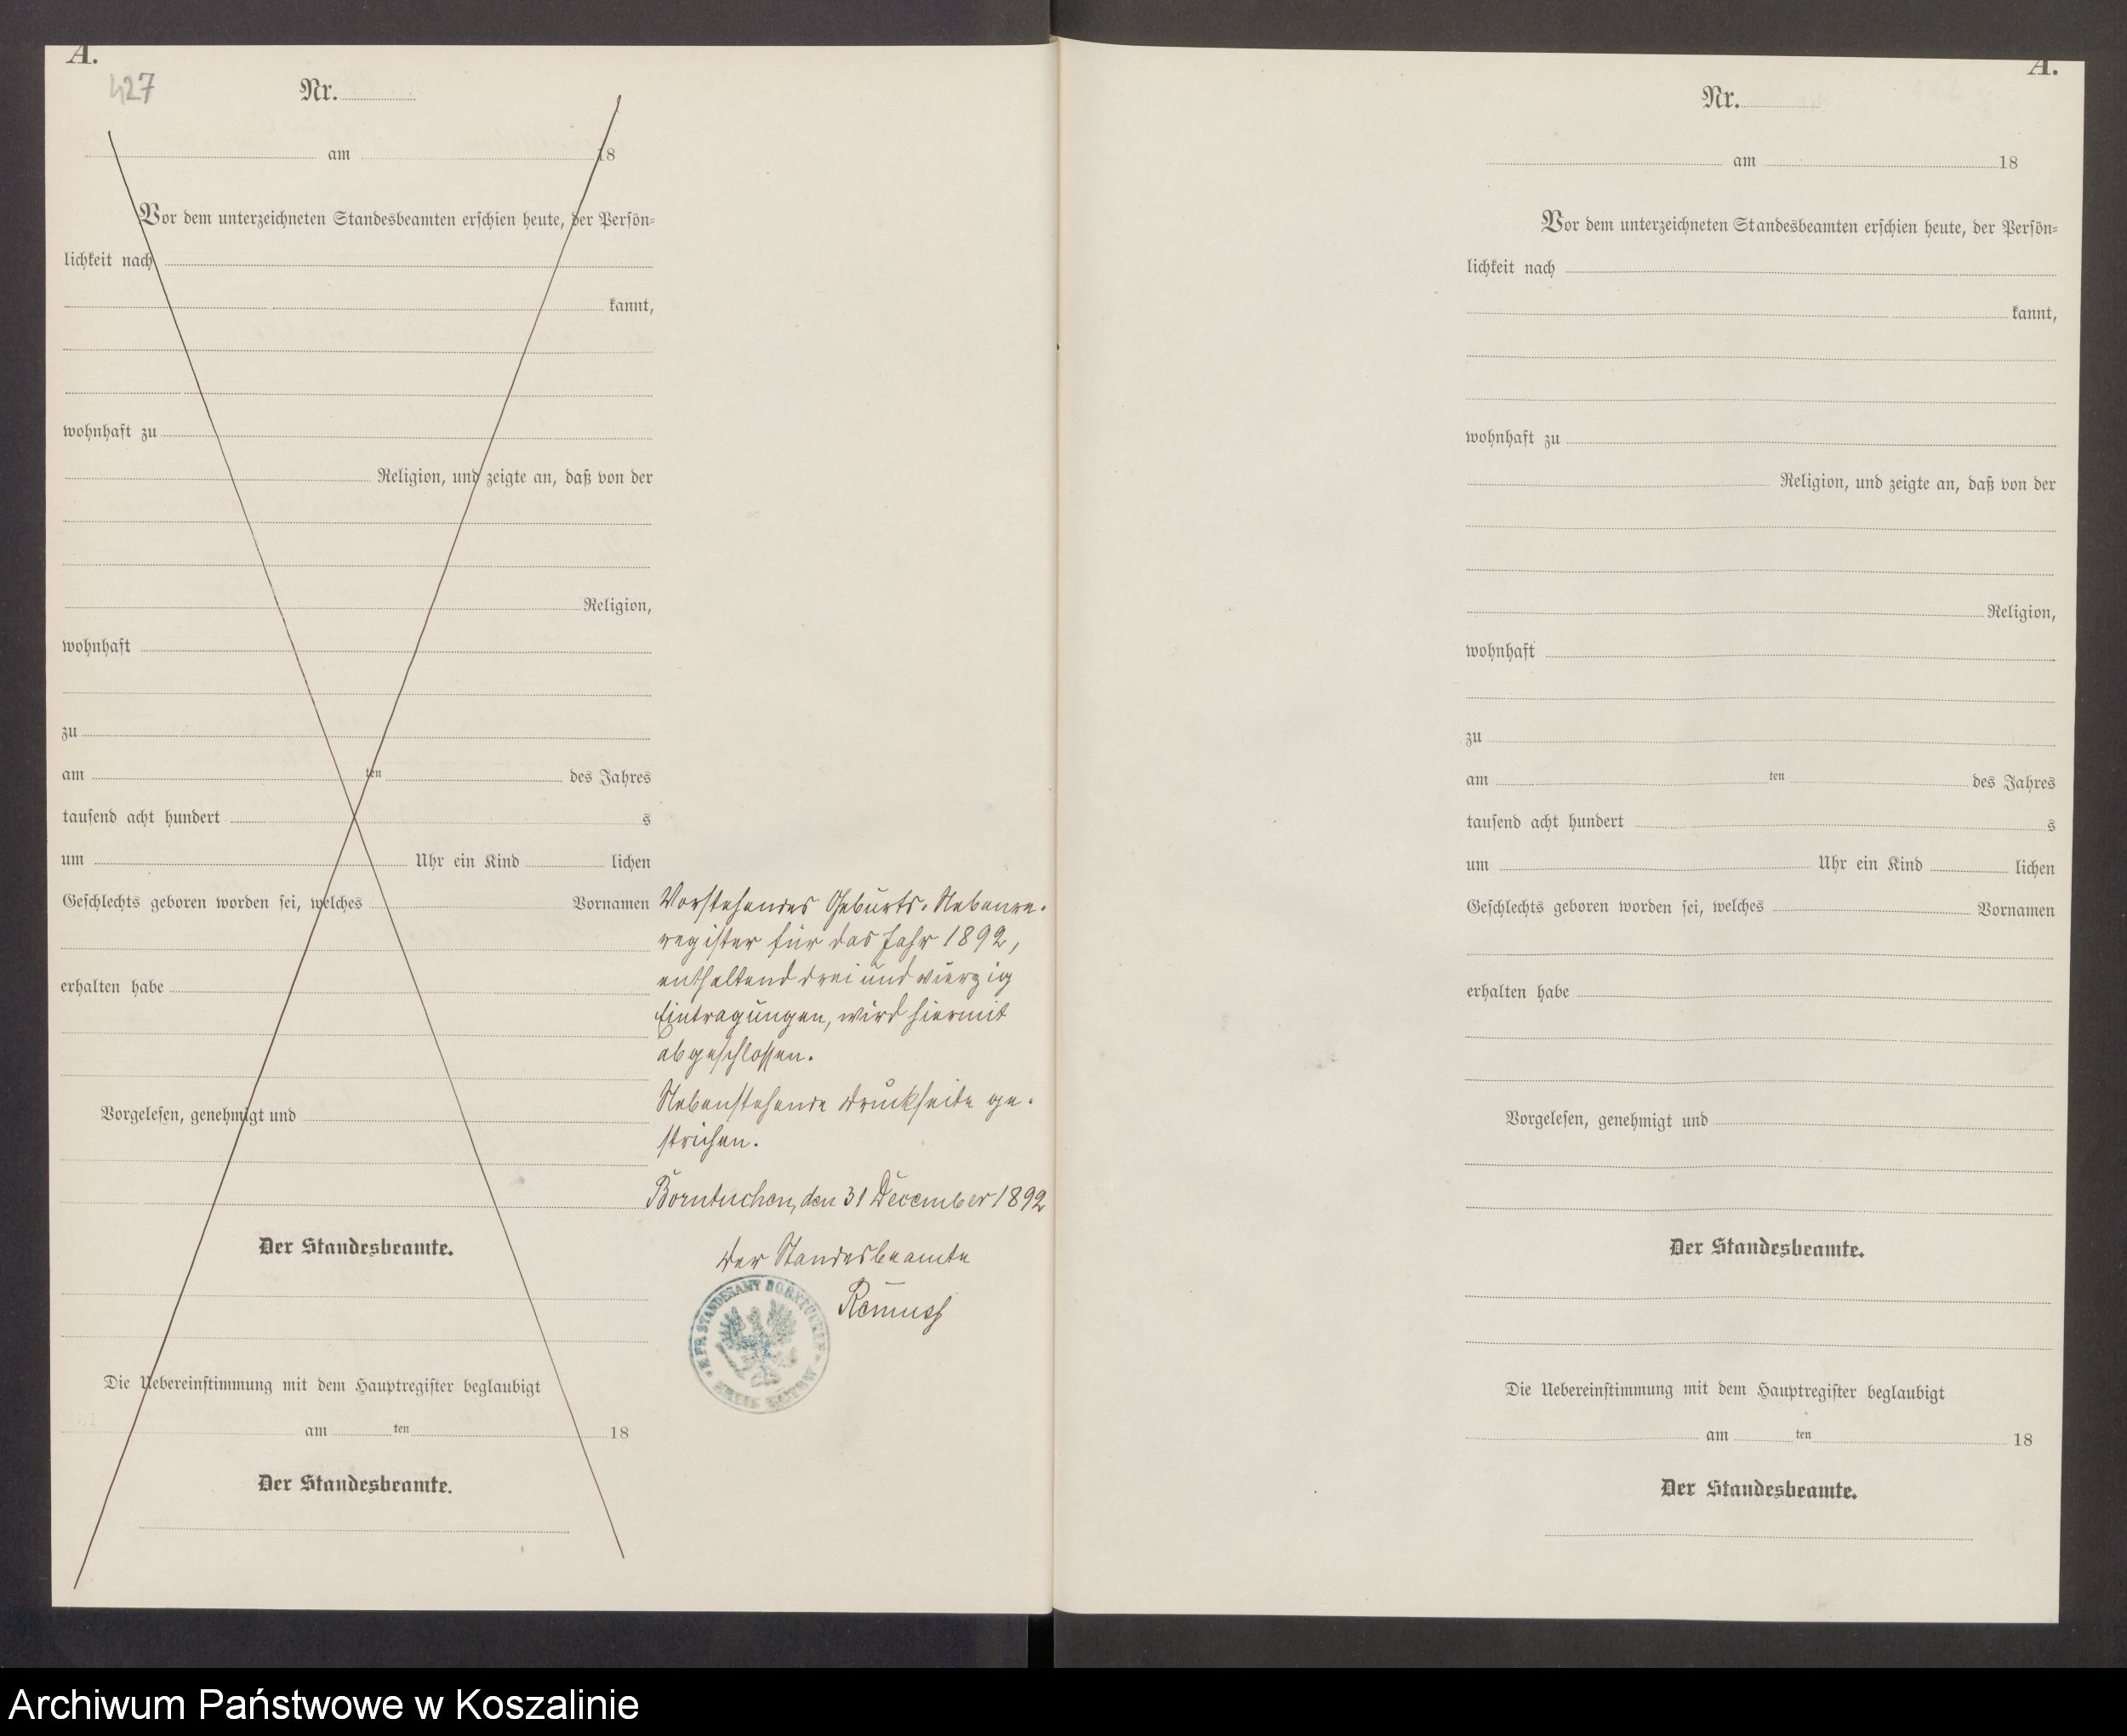 A.
427
Nr.
am 18
Vor dem unterzeichneten Standesbeamten erschien heute, der Persön-
lichkeit nach
kannt,
wohnhaft zu
Religion, und zeigte an, daß von der
Religion,
wohnhaft
zu
am ten des Jahres
tausend acht hundert s
um Uhr ein Kind lichen
Geschlechts geboren worden sei, welches Vornamen
erhalten habe
Vorgelesen, genehmigt und
Der Standesbeamte.
Die Uebereinstimmung mit dem Hauptregister beglaubigt
am ten 18
Der Standesbeamte.
Vorstehendes Geburts-Nebenre-
register für das Jahr 1892,
enthaltend drei und vierzig
Eintragungen, wird hiermit
abgeschlossen.
Nebenstehende Druckseite ge-
strichen.
Borntuchen, den 31 December 1892
Der Standesbeamte
K. PR. STANDESAMT BORNTUCHEN
KREIS BÜTOW
A.
Nr.
am 18
Vor dem unterzeichneten Standesbeamten erschien heute, der Persön-
lichkeit nach
kannt,
wohnhaft zu
Religion, und zeigte an, daß von der
Religion,
wohnhaft
zu
am ten des Jahres
tausend acht hundert s
um Uhr ein Kind lichen
Geschlechts geboren worden sei, welches Vornamen
erhalten habe
Vorgelesen, genehmigt und
Der Standesbeamte.
Die Uebereinstimmung mit dem Hauptregister beglaubigt
am ten 18
Der Standesbeamte.
Archiwum Państwowe w Koszalinie